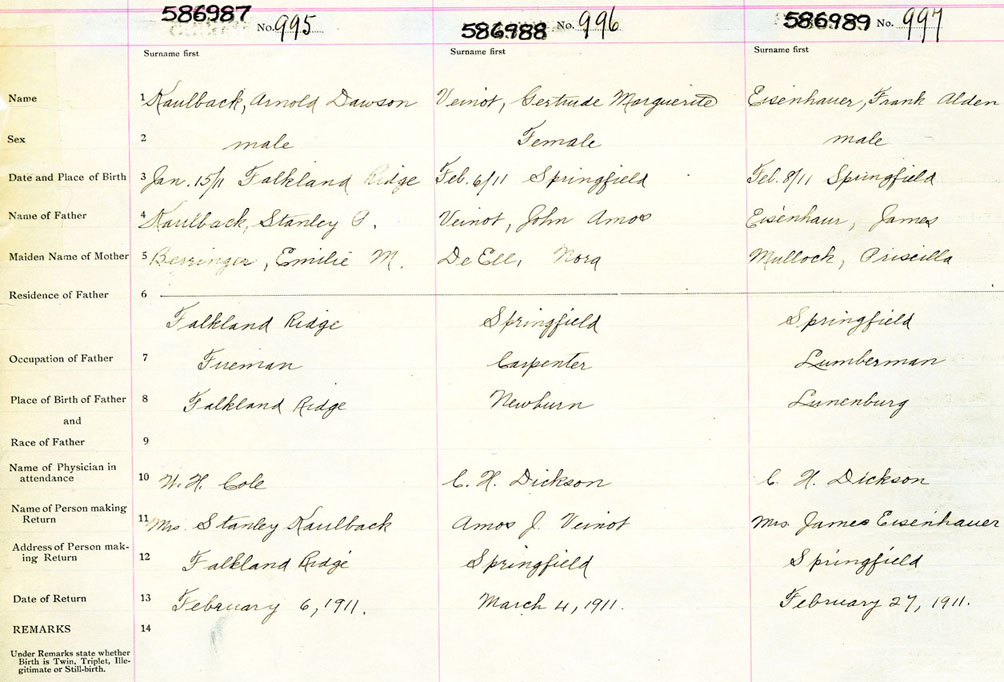 586987 No. 995 586988 No. 996 586989 No. 997
Surname first Surname first Surname first
Name 1 Kaulback, Arnold Dawson Veinot, Gertrude Marguerite Eisenhauer, Frank Alden
Sex 2 male Female male
Date and Place of Birth 3 Jan. 15/11 Falkland Ridge Feb. 6/11 Springfield Feb. 8/11 Springfield
Name of Father 4 Kaulback, Stanley Veinot, John Amos Eisenhaur, James
Maiden Name of Mother 5 Berringer, Emilie M. DeEll, Nora Mullock, Priscilla
Residence of Father 6
Falkland Ridge Springfield Springfield
Occupation of Father 7 Fireman Carpenter Lumberman
Place of Birth of Father 8 Falkland Ridge Newburn Lunenburg
and
Race of Father 9
Name of Physician in
attendance 10 W. H. Cole C. H. Dickson C. H. Dickson
Name of Person making
Return 11 Mrs. Stanley Kaulback Amos J. Veinot Mrs James Eisenhauer
Address of Person mak-
ing Return 12 Falkland Ridge Springfield Springfield
Date of Return 13 February 6, 1911. March 4, 1911. February 27, 1911.
REMARKS 14
Under Remarks state whether
Birth is Twin, Triplet, Ille-
gitimate or Still-birth.